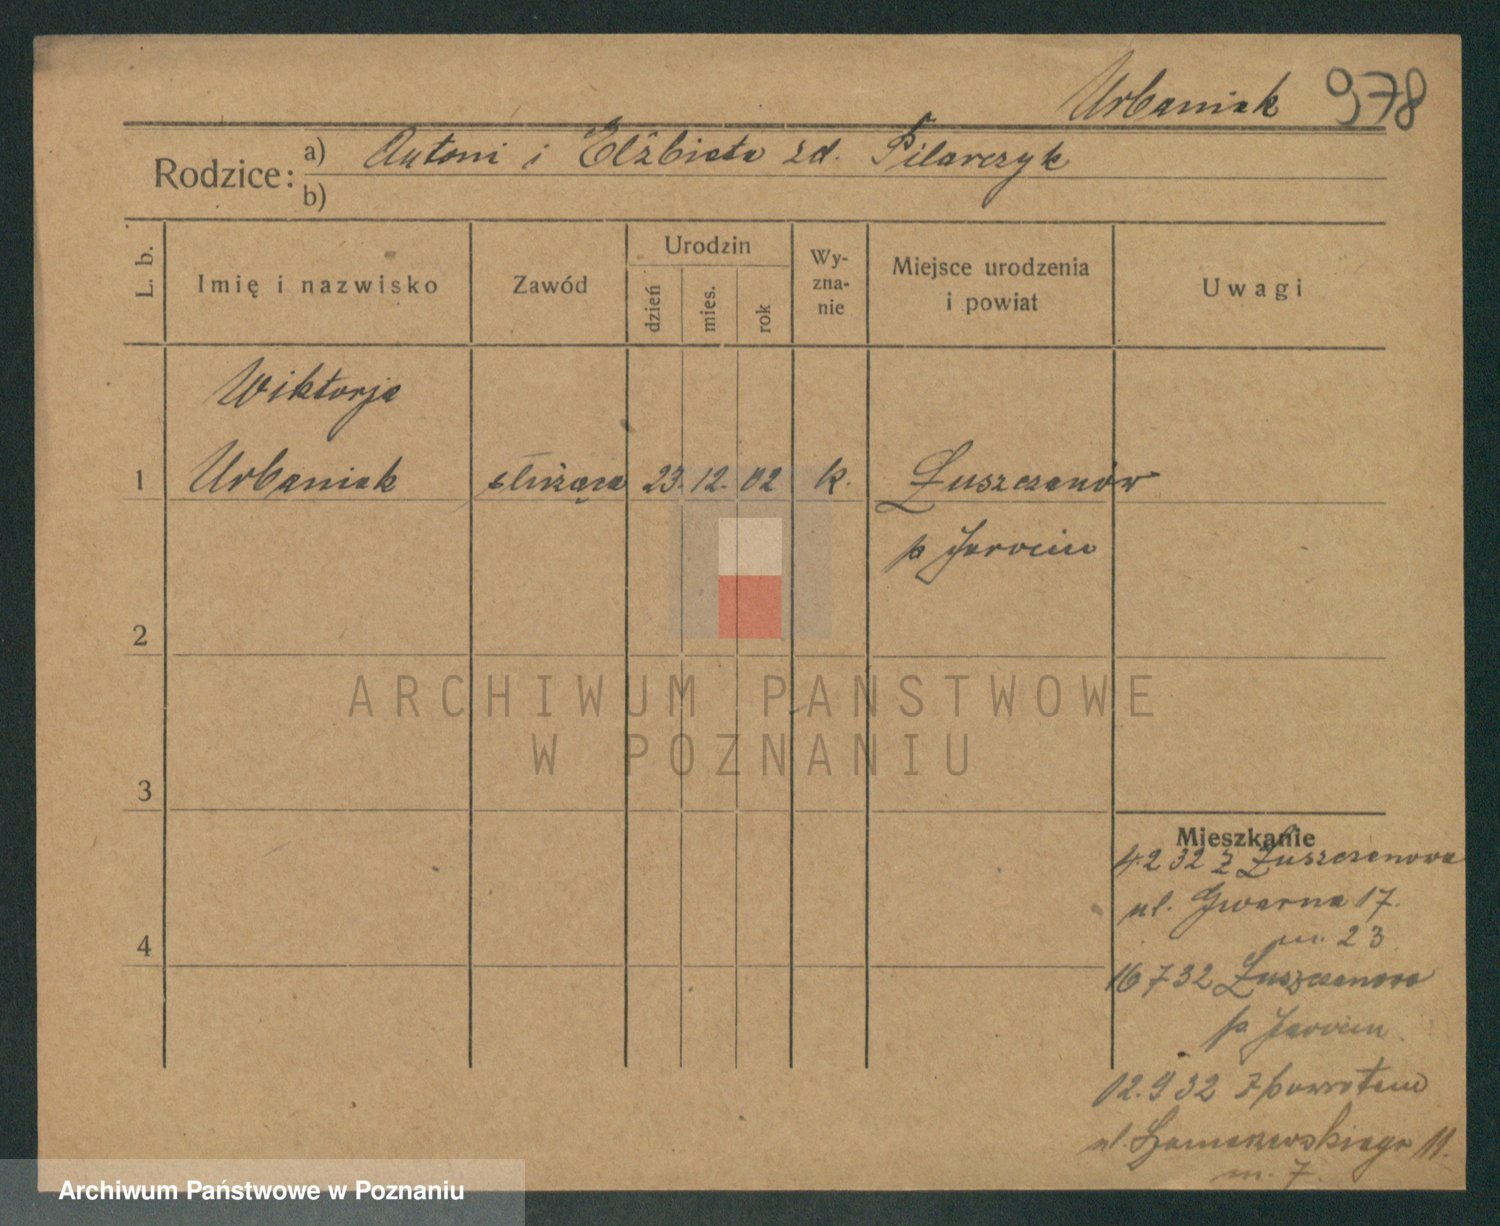 Urbaniak 978
Rodzice: a) Antoni i Elżbieta zd. Pilarczyk
b)
L. b. Imię i nazwisko Zawód Urodzin dzień mies. rok Wy-zna-nie Miejsce urodzenia i powiat Uwagi
Wiktorja
1 Urbaniak służąca 23. 12. 02 k. Łuszczanów
p Jarocin
2
ARCHIWUM PAŃSTWOWE
W POZNANIU
3
Mieszkanie
4.2 32 z Łuszczanowa
ul. Gwarna 17.
m. 23
4
16 7 32 Łuszczanowo
p Jarocin
12.9 32 z powrotem
ul. 11.
m. 7.
Archiwum Państwowe w Poznaniu